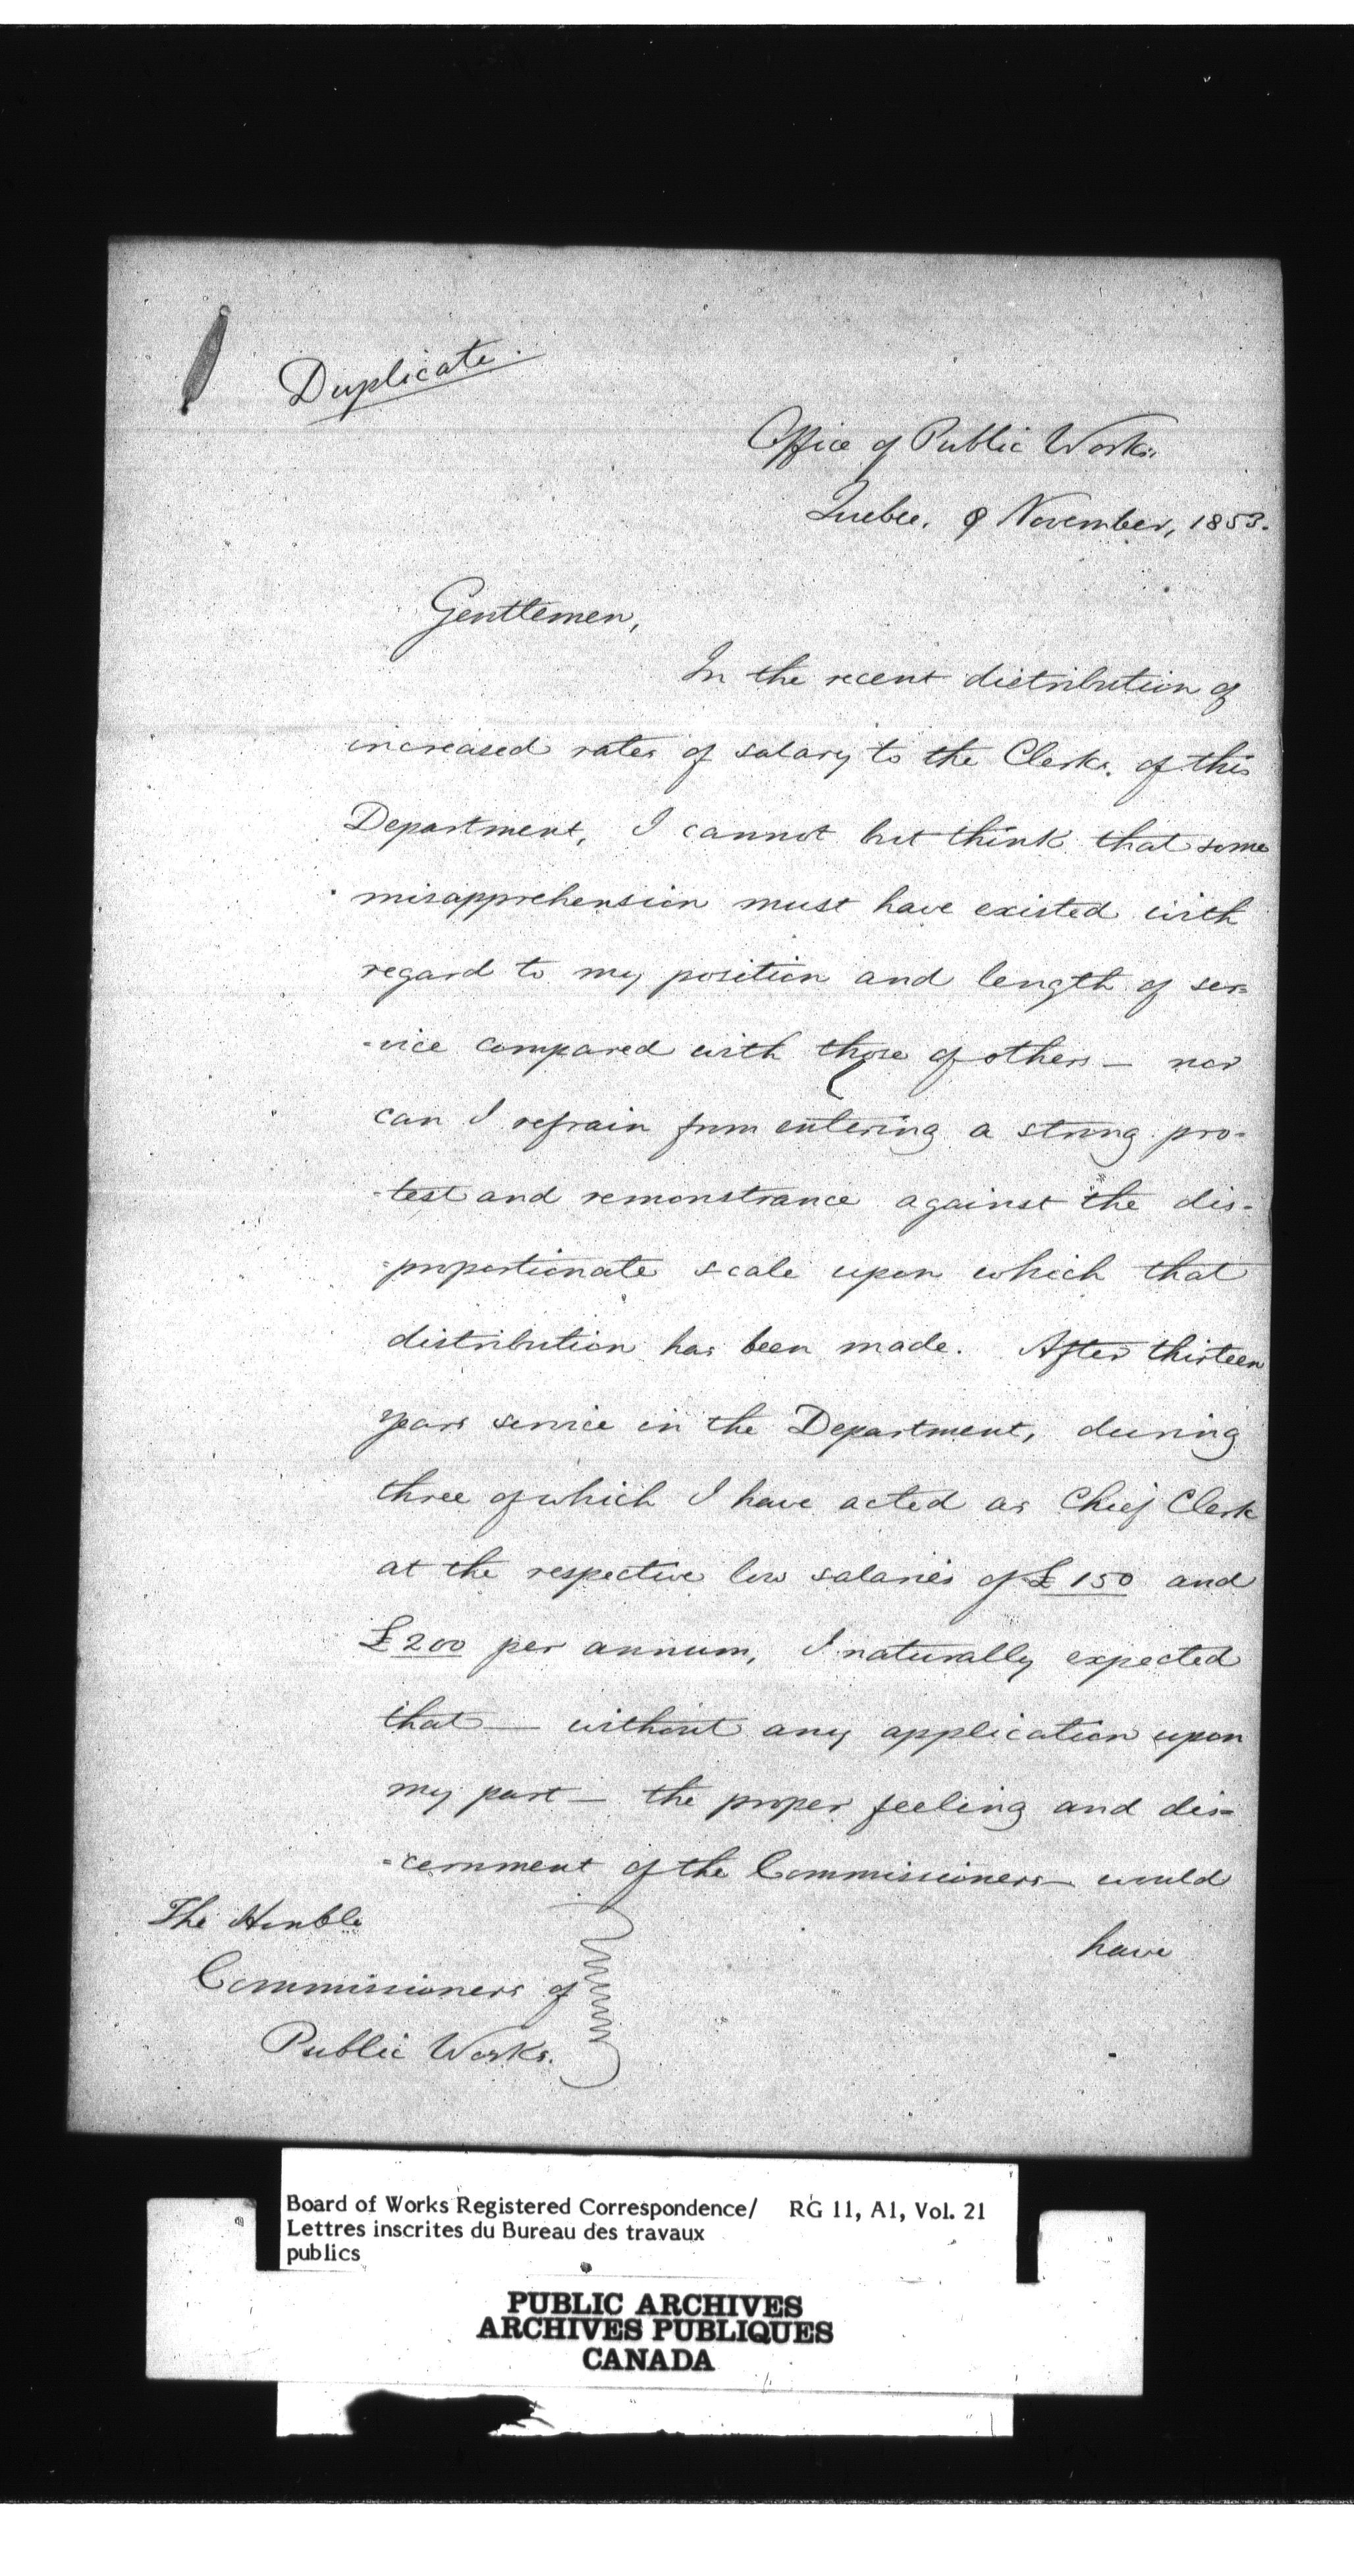 Duplicate.
Office of Public Works,
Quebec. 9 November, 1853.
Gentlemen,
In the recent distribution of
increased rates of salary to the Clerks of this
Department, I cannot but think that some
misapprehension must have existed with
regard to my position and length of ser=
-vice compared with those of others — nor
can I refrain from entering a strong pro-
-test and remonstrance against the dis-
-proportionate scale upon which that
distribution has been made. After thirteen
years service in the Department, during
three of which I have acted as Chief Clerk
at the respective low salaries of £150 and
£200 per annum, I naturally expected
that — without any application upon
my part — the proper feeling and dis=
=cernment of the Commissioners — would
have
The Honble
Commissioners of
Public Works.
Board of Works Registered Correspondence/ RG 11, A1, Vol. 21
Lettres inscrites du Bureau des travaux
publics
PUBLIC ARCHIVES
ARCHIVES PUBLIQUES
CANADA